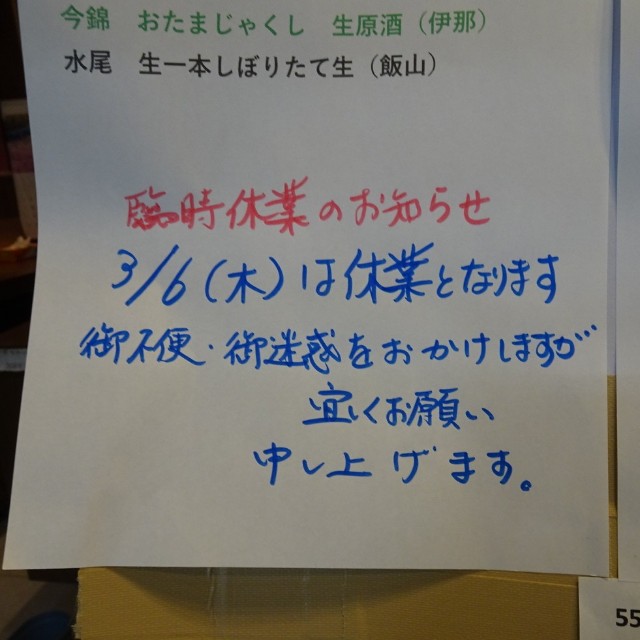 今錦　おたまじゃくし　生原酒（伊那）
水尾　生一本しぼりたて生（飯山）
臨時休業のお知らせ
3/6（木）は休業となります
御不便・御迷惑をおかけしますが
宜しくお願い
申し上げます。
55